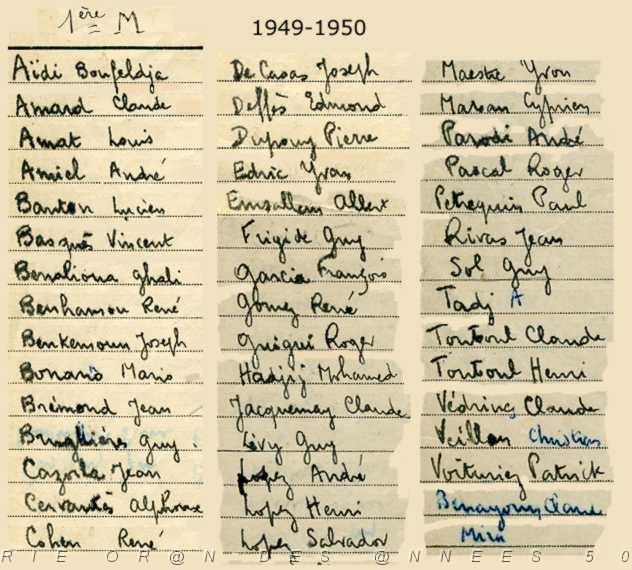 1ère M
1949-1950
Aïdi Boufeldja
Amard Claude
Amat Louis
Amiel André
Banton Lucien
Basquès Vincent
Benaliona Ghali
Benhamou René
Benkemoun Joseph
Bonano Mario
Brémond Jean
Brughières Guy
Cazorla Jean
Cervantès Alphonse
Cohen René
De Casas Joseph
Deffès Edmond
Dupouy Pierre
Edric Yvan
Emsallem Albert
Frigide Guy
Garcia François
Gomez René
Guigui Roger
Hadjij Mohamed
Jacquemay Claude
Lévy Guy
Lopez André
Lopez Henri
Lopez Salvador
Maestre Yvon
Cyprien
Parodi André
Pascal Roger
Petrequin Paul
Rivas Jean
Sol Guy
Tadj A
Toutoul Claude
Toutoul Henri
Védrine Claude
Veillon Christian
Voituriez Patrick
Benayoun Claude
RIE OR@N DES @NNEES 50